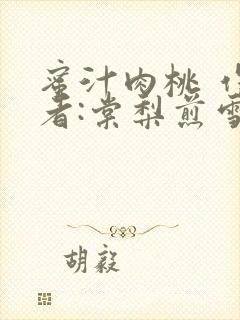 蜜汁肉桃
者:棠梨煎雪
胡毅